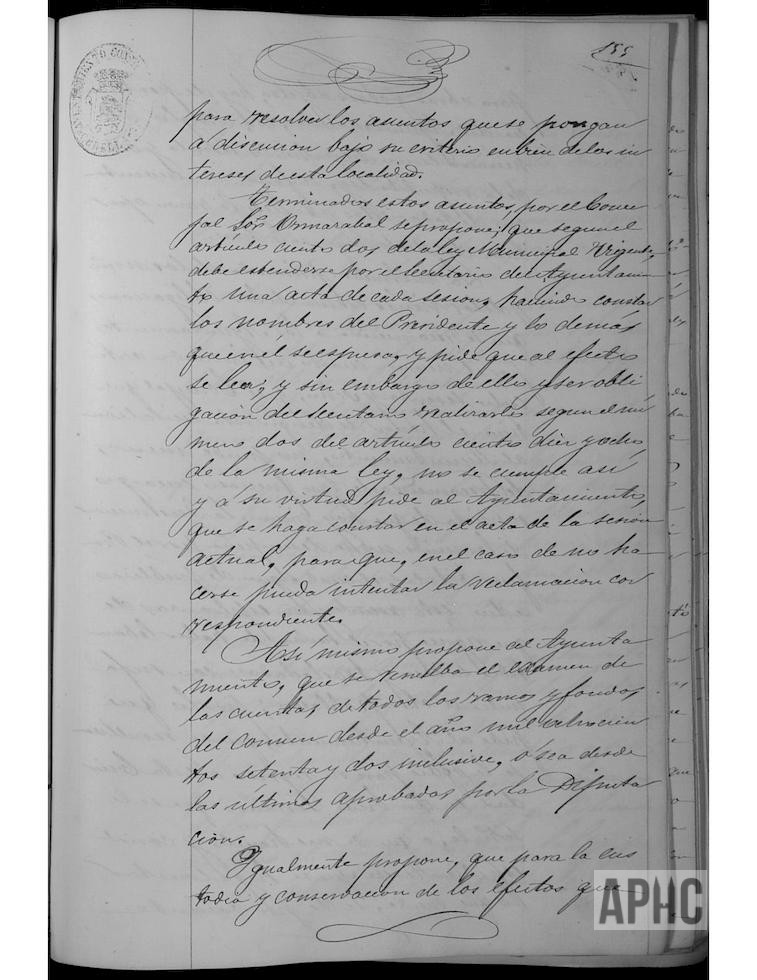 155
para resolver los asuntos que se pongan
a discucion bajo su criterio en bien de los in
tereses de esta localidad.
Terminados estos asuntos, por el Conce
jal Sor. Ormazabal se propone; que segun el
articulo ciento dos de la ley Municipal Vigente,
debe estenderse por el Secretario del Ayuntamien
to una acta de cada sesion, haciendo constar
los nombres del Presidente y lo demás
que en él se espresa, y pide que al efecto
se lea; y sin embargo de ello y ser obli
gación del Secretario realizarlo segun el nú
mero dos del artículo ciento diez y ocho
de la misma ley, no se cumple así
y a su virtud pide al Ayuntamiento,
que se haga constar en el acta de la sesión
actual, para que, en el caso de no ha
cerse pueda intentar la reclamacion cor
respondiente.
Así mismo propone al Ayunta
miento, que se resuelva el exámen de
las cuentas de todos los ramos y fondos
del comun desde el año mil ochocien
tos setenta y dos inclusive, ó sea desde
las últimas aprobadas por la Diputa
cion.
Ygualmente propone, que para la cus
todia y conservacion de los efectos que
APHC